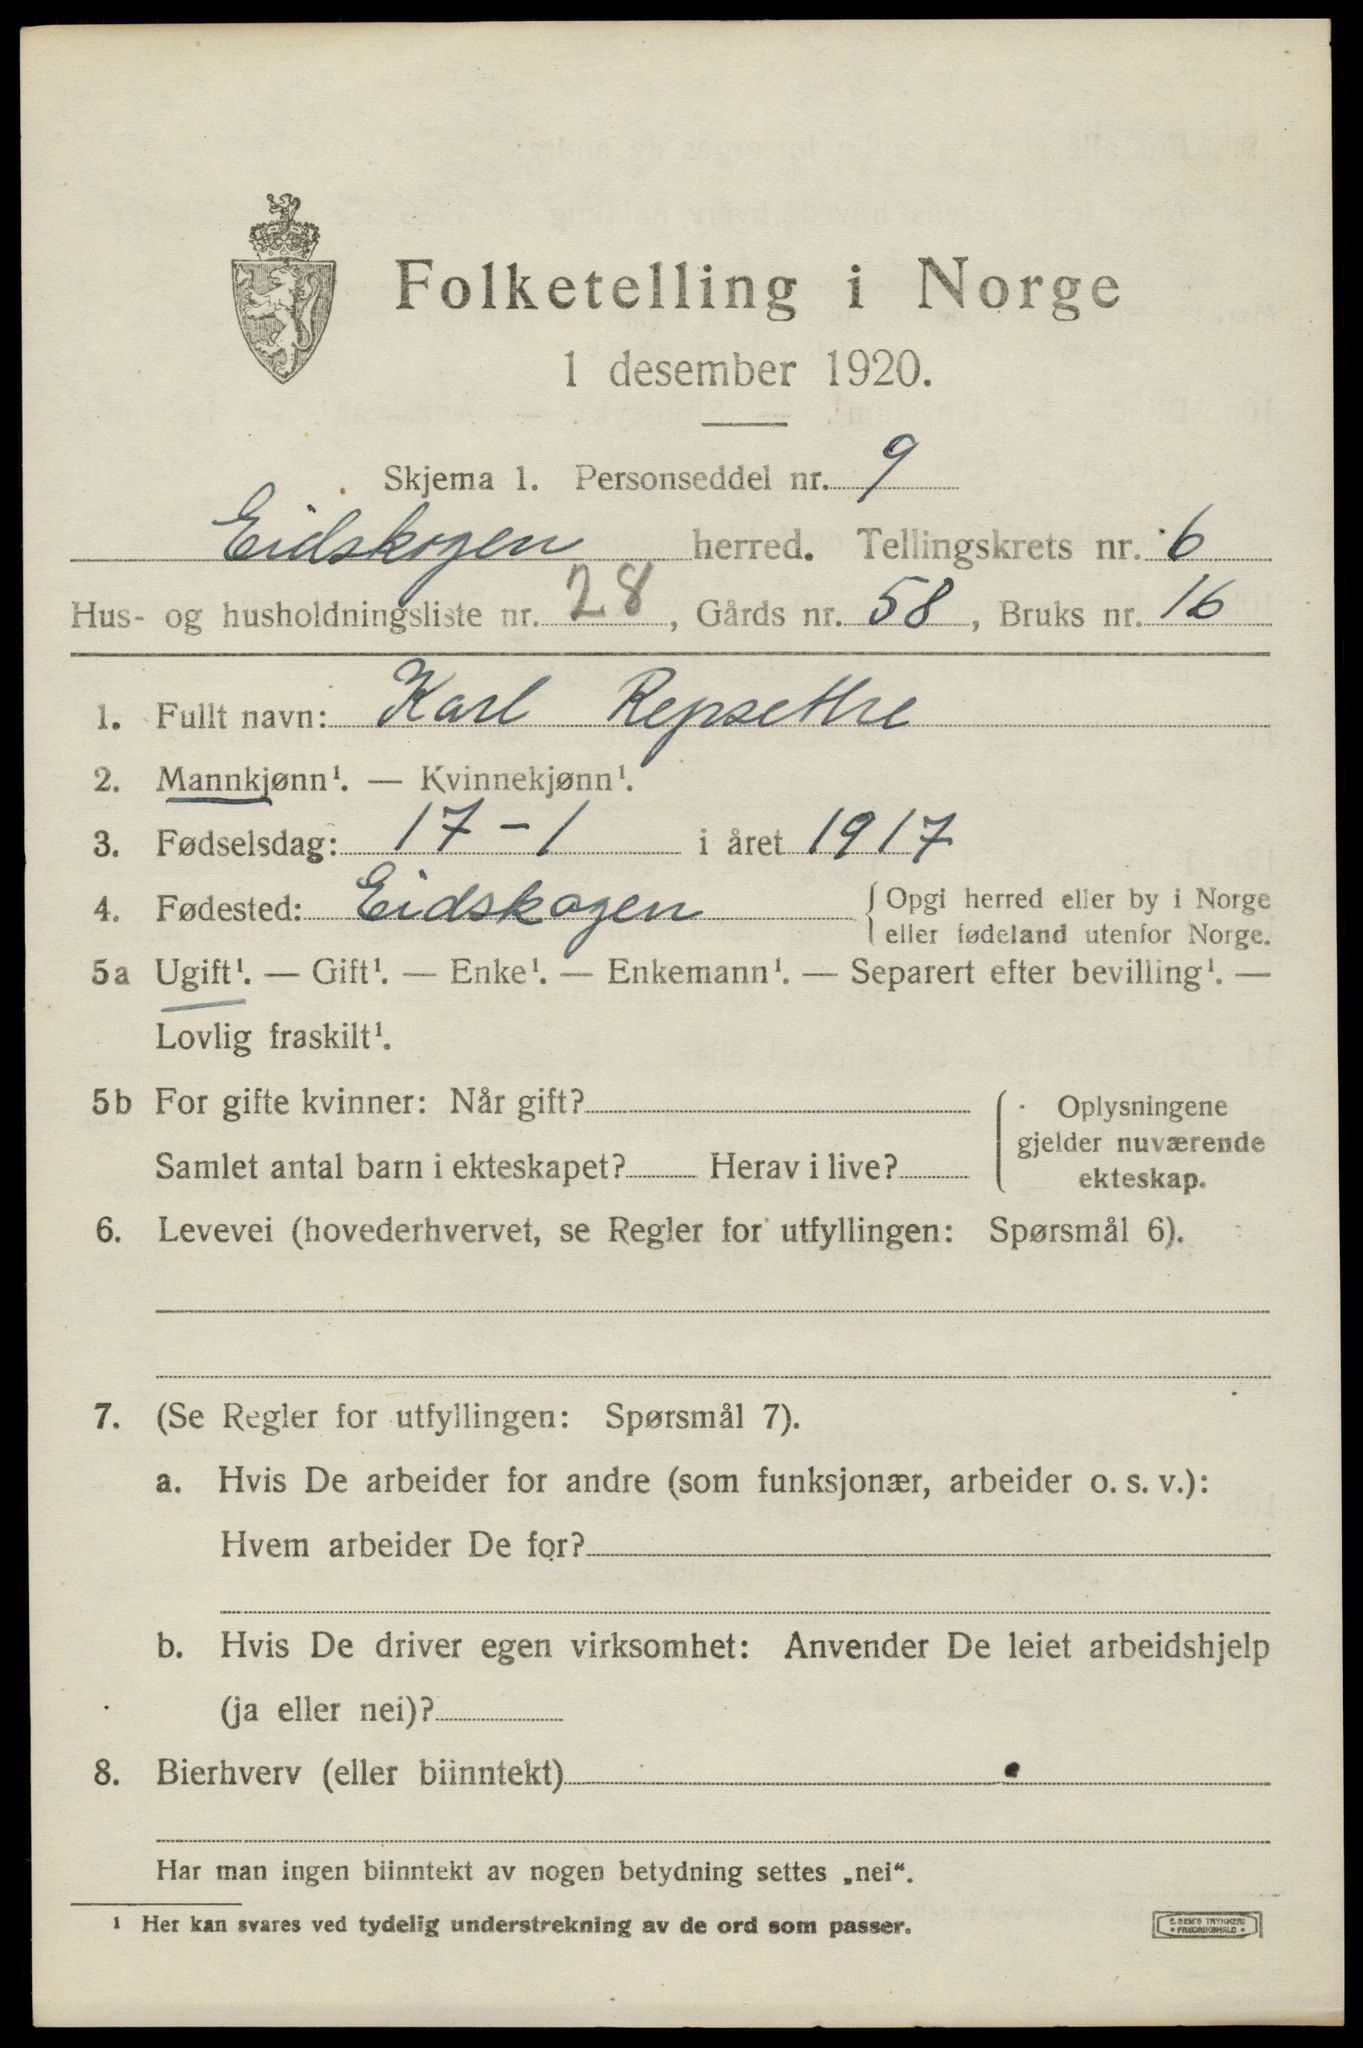 Folketelling i Norge
1 desember 1920.
Skjema 1. Personseddel nr. 9
Eidskogen herred. Tellingskrets nr. 6
Hus- og husholdningsliste nr. 28, Gårds nr. 58, Bruks nr. 16
1. Fullt navn: Karl Repsethre
2. Mannkjønn¹. — Kvinnekjønn¹.
3. Fødselsdag: 17-1 i året 1917
4. Fødested: Eidskogen { Opgi herred eller by i Norge
eller fødeland utenfor Norge.
5a Ugift¹. — Gift¹. — Enke¹. — Enkemann¹. — Separert efter bevilling¹. —
Lovlig fraskilt¹.
5b For gifte kvinner: Når gift?
Samlet antal barn i ekteskapet? Herav i live?
Oplysningene
gjelder nuværende
ekteskap.
6. Levevei (hovederhvervet, se Regler for utfyllingen: Spørsmål 6).
7. (Se Regler for utfyllingen: Spørsmål 7).
a. Hvis De arbeider for andre (som funksjonær, arbeider o. s. v.):
Hvem arbeider De for?
b. Hvis De driver egen virksomhet: Anvender De leiet arbeidshjelp
(ja eller nei)?
8. Bierhverv (eller biinntekt)
Har man ingen biinntekt av nogen betydning settes „nei“.
¹ Her kan svares ved tydelig understrekning av de ord som passer.
E. SEM'S TRYKKERI
FREDRIKSHALD